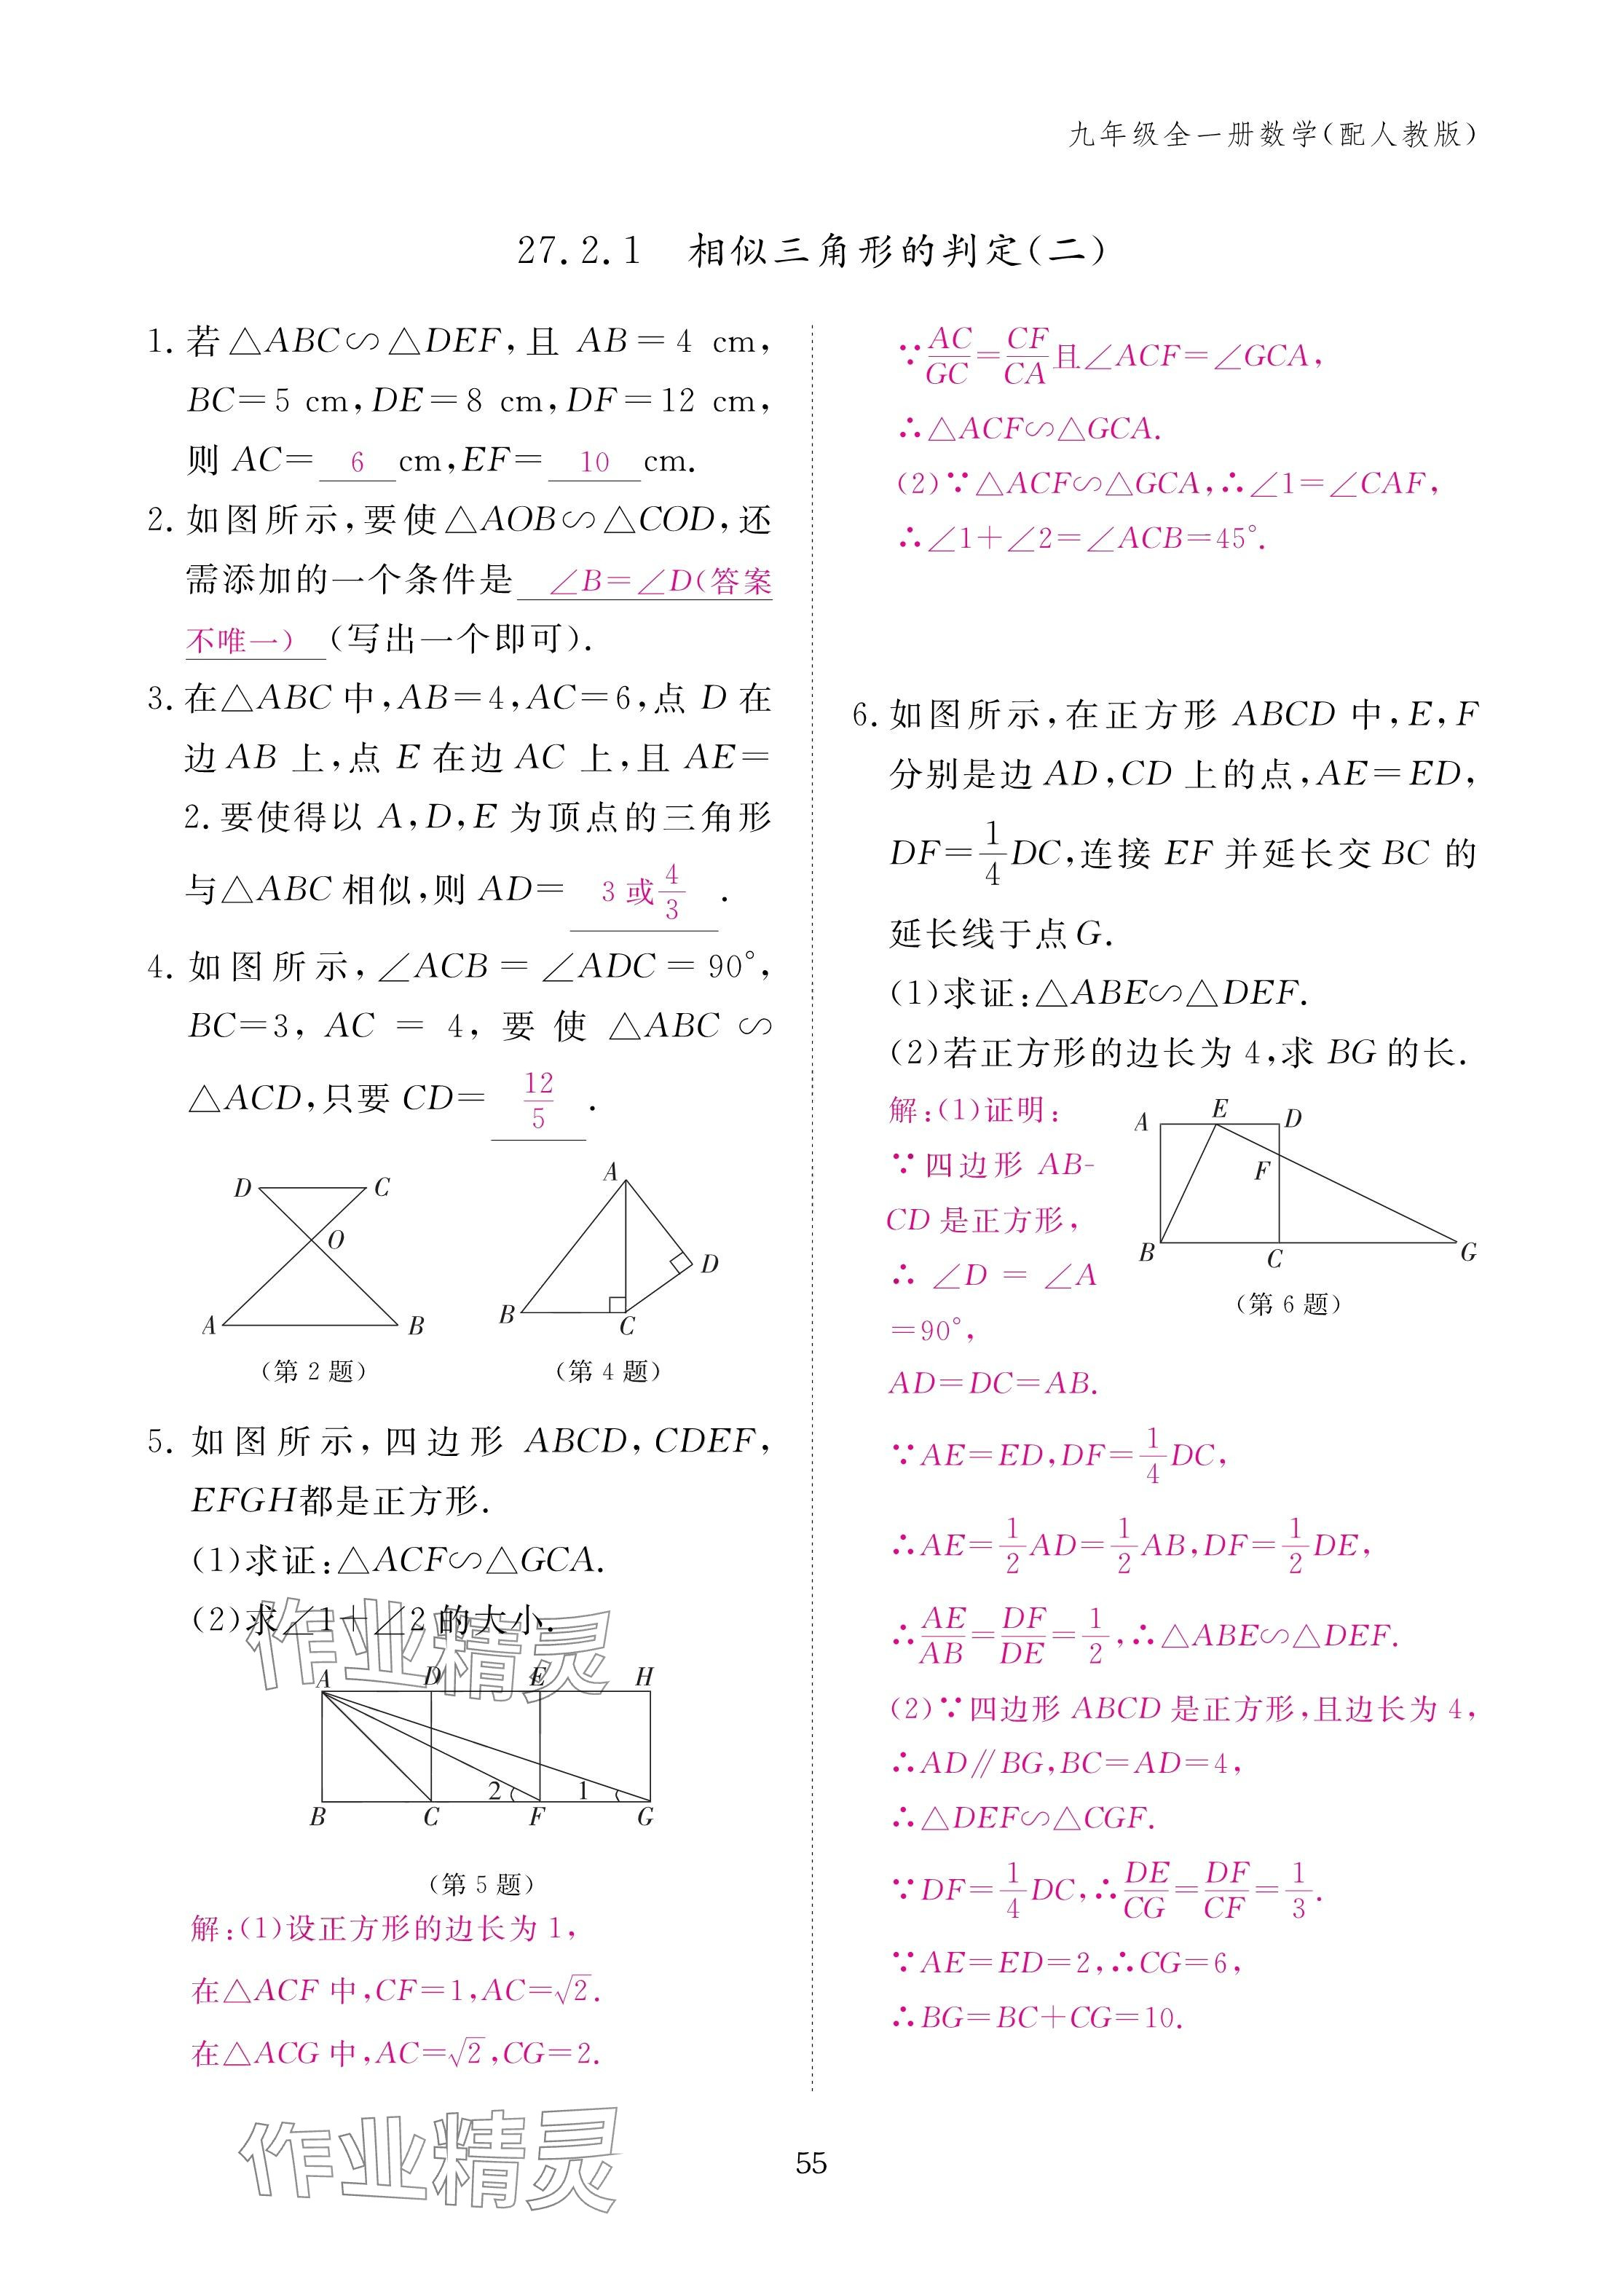 九年级全一册数学(配人教版)
27.2.1 相似三角形的判定(二)
1. 若△ABC∽△DEF,且 AB=4 cm,
BC=5 cm,DE=8 cm,DF=12 cm,
则 AC= 6 cm,EF= 10 cm.
2. 如图所示,要使△AOB∽△COD,还
需添加的一个条件是 ∠B=∠D(答案
不唯一) (写出一个即可).
3. 在△ABC 中,AB=4,AC=6,点 D 在
边 AB 上,点 E 在边 AC 上,且 AE=
2.要使得以 A,D,E 为顶点的三角形
与△ABC 相似,则 AD= 3 或 4/3 .
4. 如图所示,∠ACB=∠ADC=90°,
BC=3, AC = 4, 要使 △ABC ∽
△ACD,只要 CD= 12/5 .
D C
O
A B
(第 2 题)
A
D
B C
(第 4 题)
5. 如图所示,四边形 ABCD,CDEF,
EFGH都是正方形.
(1)求证:△ACF∽△GCA.
(2)求∠1+∠2 的大小.
A D E H
2 1
B C F G
(第 5 题)
解:(1)设正方形的边长为 1,
在△ACF 中,CF=1,AC=√2.
在△ACG 中,AC=√2,CG=2.
∵AC/GC=CF/CA且∠ACF=∠GCA,
∴△ACF∽△GCA.
(2)∵△ACF∽△GCA,∴∠1=∠CAF,
∴∠1+∠2=∠ACB=45°.
6. 如图所示,在正方形 ABCD 中,E,F
分别是边 AD,CD 上的点,AE=ED,
DF=1/4DC,连接 EF 并延长交 BC 的
延长线于点 G.
(1)求证:△ABE∽△DEF.
(2)若正方形的边长为 4,求 BG 的长.
A E D
F
B C G
(第 6 题)
解:(1)证明:
∵四边形 AB-
CD 是正方形,
∴ ∠D = ∠A
=90°,
AD=DC=AB.
∵AE=ED,DF=1/4DC,
∴AE=1/2AD=1/2AB,DF=1/2DE,
∴AE/AB=DF/DE=1/2,∴△ABE∽△DEF.
(2)∵四边形 ABCD 是正方形,且边长为 4,
∴AD∥BG,BC=AD=4,
∴△DEF∽△CGF.
∵DF=1/4DC,∴DE/CG=DF/CF=1/3.
∵AE=ED=2,∴CG=6,
∴BG=BC+CG=10.
作业精灵
作业精灵
55